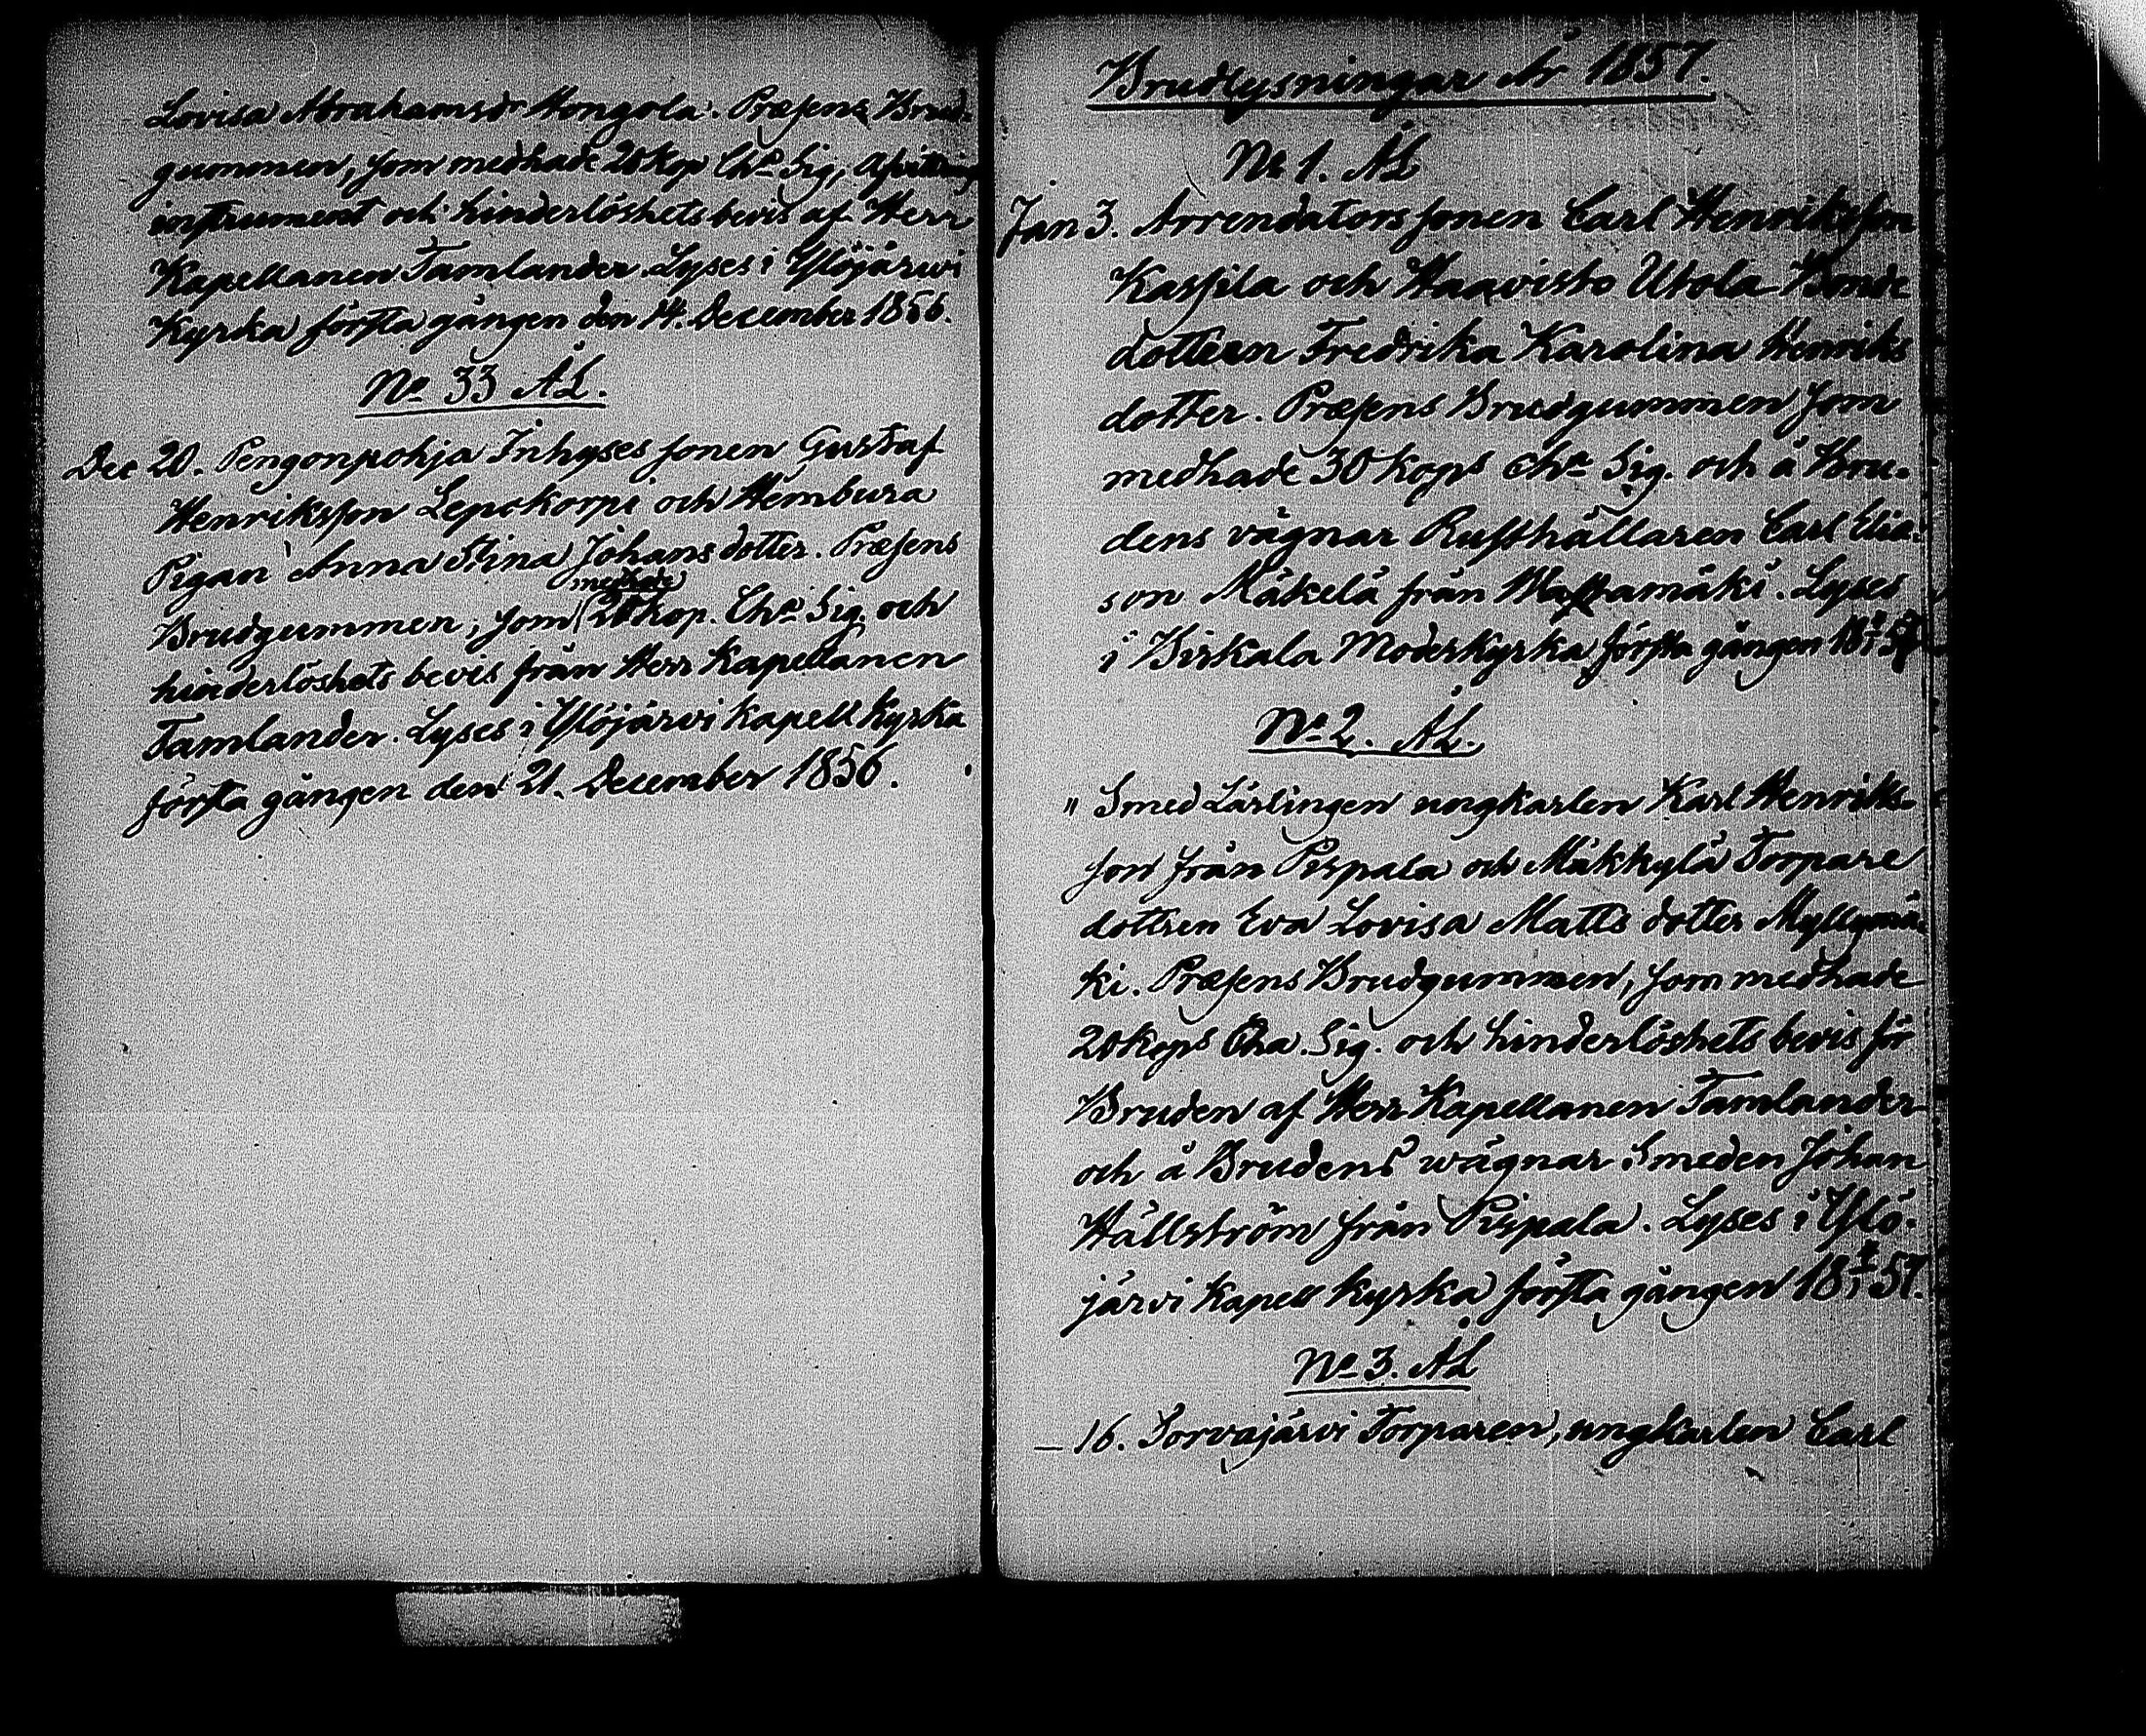 Lovisa Abrahamsdr Hongola. Præsens Brud-
gummen, som medhade 20 Kop Cha Sig, Afvittrings
instrument och hinderlöshets bevis af Herr
Kapellanen Tamlander. Lyses i Ylöjärvi
Kyrka första gången den 14. December 1856.
No 33 ÅL.
Dec 20. Pengonpohja Inhyses sonen Gustaf
Henriksson Lepokorpi och Hembura
Pigan Anna Stina Johans dotter. Præsens
medhade
Brudgummen, som 20 kop. Cha Sig. och
hinderlöshets bevis från Herr Kapellanen
Tamlander. Lyses i Ylöjärvi Kapell Kyrka
första gången den 21. December 1856.
Brudlysningar År 1857.
No 1. ÅL
Jan 3. Arrendators sonen Carl Henriksson
Kassila och Haavisto Utola Bonde
dottern Fredrika Karolina Henriks
dotter. Præsens Brudgummen som
medhade 30 kops Cha Sig. och å Bru-
dens vägnar Rusthållaren Carl Elia-
son Mäkelä från
Lyses
i Birkala Moderkyrka första gången 18 57
No 2. ÅL.
" Smed Lärlingen ungkarlen Karl Henriks-
son från Pispala och Mäkkylä Torpare
dottren Eva Lovisa Matts dotter Myllymä-
ki. Præsens Brudgummen, som medhade
20 Kops Cha. Sig. och hinderlöshets bevis för
Bruden af Herr Kapellanen Tamlander
och å Brudens wägnar Smeden Johan
Hällström från Pispala. Lyses i Ylö-
järvi Kapell Kyrka första gången 18 57.
No 3. ÅL
— 16. Sorvajärvi Torparen, ungkarlen Carl